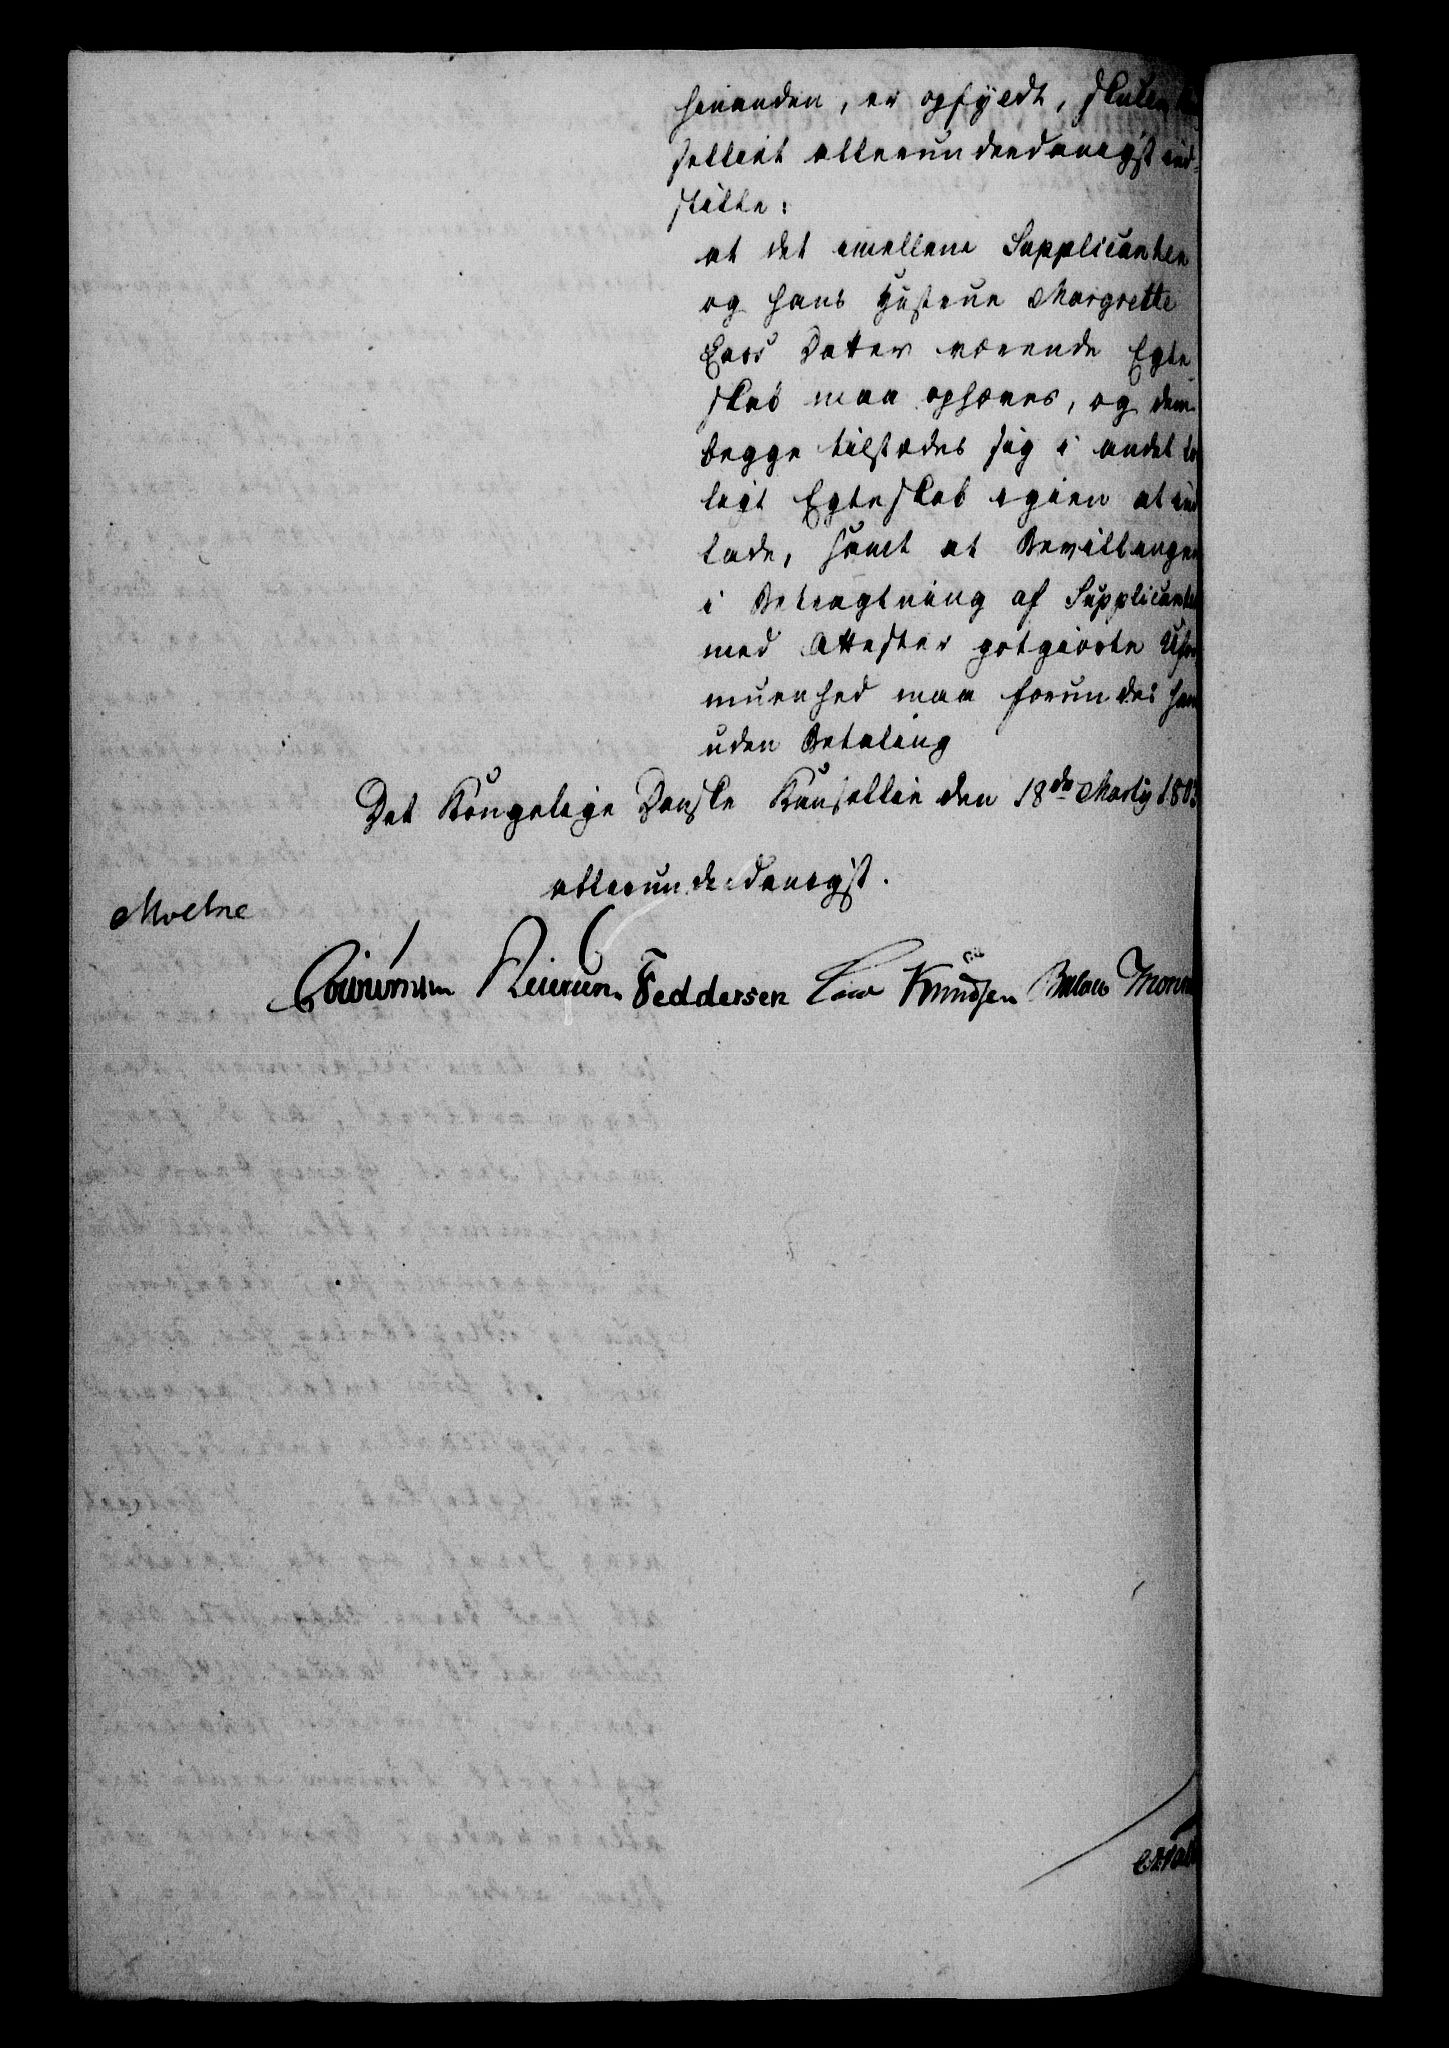 hinanden, er opfyldt, skulle
selliet allerunderdanigst ind-
stille:
at det imellem Supplicanten
og hans Hustrue Margrette
Lars Datter værende Egte
skab maa ophæves, og dem
begge tilstædes sig i andet
ligt Egteskab igien at ind
lade, samt at Bevillingen
i Betragtning af Supplicantens
med Attester godgiorte Ufor
muenhed maa forundes ham
uden Betaling
Det Kongelige Danske Kansellie den 18de Martij 1803
allerunderdanigst.
Moltke
Feddersen Knudsen